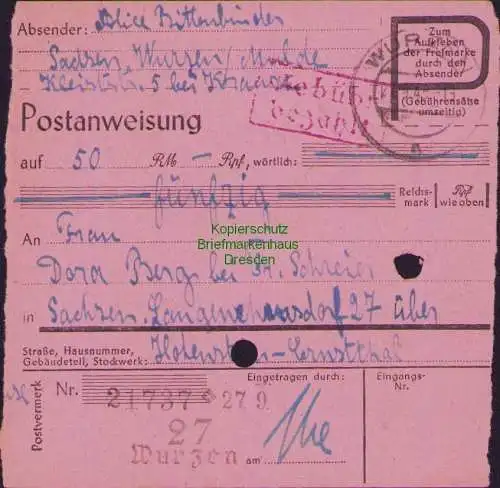 Absender: Alice Bittenbinder
Sachsen, Wurzen/Mulde
Kleiststr. 5 bei
Zum
Aufkleben
der Freimarke
durch den
Absender
(Gebührensätze
umseitig)
WUR
Gebühr
bezahlt
a
Postanweisung
auf 50 RM — Rpf, wörtlich:
fünfzig
Reichs-
mark
Rpf
wie oben
An Frau
Kopierschutz
Briefmarkenhaus
Dresden
Dora Berg bei Fr. Schreier
in Sachsen, Langenchursdorf 27 über
Straße, Hausnummer,
Gebäudeteil, Stockwerk:
Hohenstein-Ernstthal
Postvermerk
Nr. 21737 * 27 9
27
Wurzen am
Eingetragen durch:
Eingangs-
Nr.